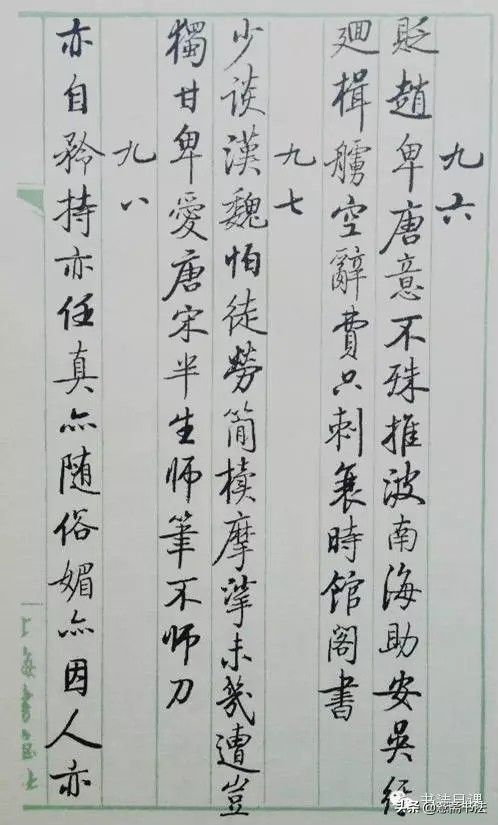 九六
貶趙卑唐意不殊推波南海助安吳
廻楫艣空辭費只刺衰時館閣書
九七
少談漢魏怕徒勞簡牘摩挲未幾遭豈
獨甘卑愛唐宋半生师筆不师刀
九八
亦自矜持亦任真亦随俗媚亦因人亦
书法日课